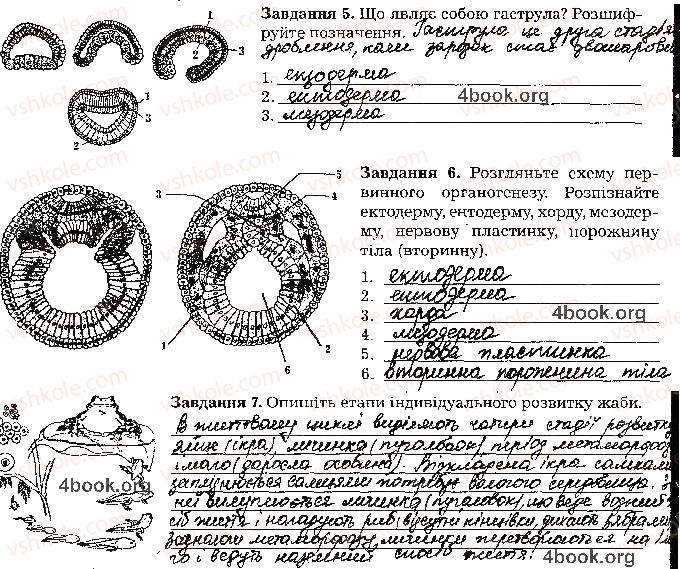 Завдання 5. Що являє собою гаструла? Розшиф-
руйте позначення. Гаструла це друга стадія
дроблення, коли зародок стає двошаровий
1. ектодерма
2. ентодерма 4book.org
3. мезодерма
1
2
3
1
3
2
Завдання 6. Розгляньте схему пер-
винного органогенезу. Розпізнайте
ектодерму, ентодерму, хорду, мезодер-
му, нервову пластинку, порожнину
тіла (вторинну).
1. ектодерма
2. ентодерма
3. хорда 4book.org
4. мезодерма
5. нервова пластинка
6. вторинна порожнина тіла
5
3
4
1
6
2
Завдання 7. Опишіть етапи індивідуального розвитку жаби.
В життєвому циклі виділяють чотири стадії розвитку
яйце (ікра), личинка (пуголовок), період метаморфозу
імаго (доросла особина). Відкладена ікра самками
запліднюється самцями потребує вологого середовища. З
неї вилуплюється личинка (пуголовок), що веде водний
спосіб життя і нагадують риб, відсутні кінцівки, дихають зябрами
4book.org
личинки перетворюються на
го і ведуть наземний спосіб життя. 4book.org
vshkole.com